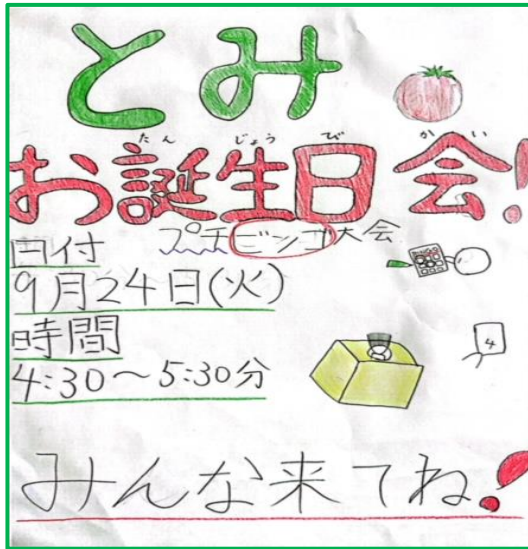 とみ
たんじょうびかい
お誕生日会!
プチビンゴ大会
日付
9月24日(火)
時間
4:30～5:30分
4
みんな来てね!